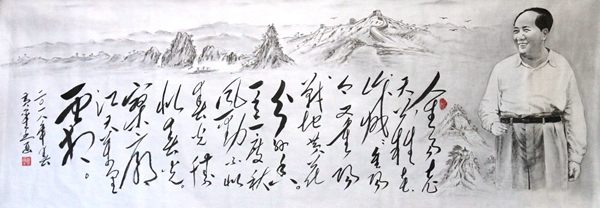 人生易老
天难老
岁岁重阳
今又重阳
战地黄花
分外香
一年一度秋
风劲不似
春光胜
似春光
寥廓
江天万里
霜
二〇一八年春